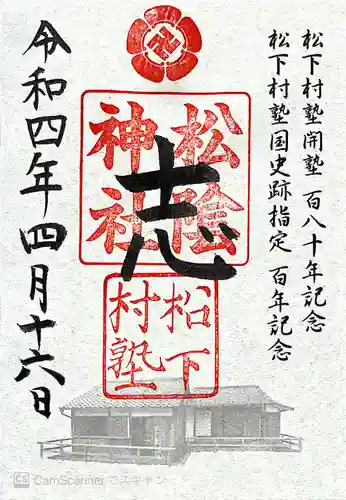 松下村塾開塾 百八十年記念
松下村塾国史跡指定 百年記念
松陰
神社
志
松下
村塾
令和四年四月十六日
CS CamScanner でスキャン